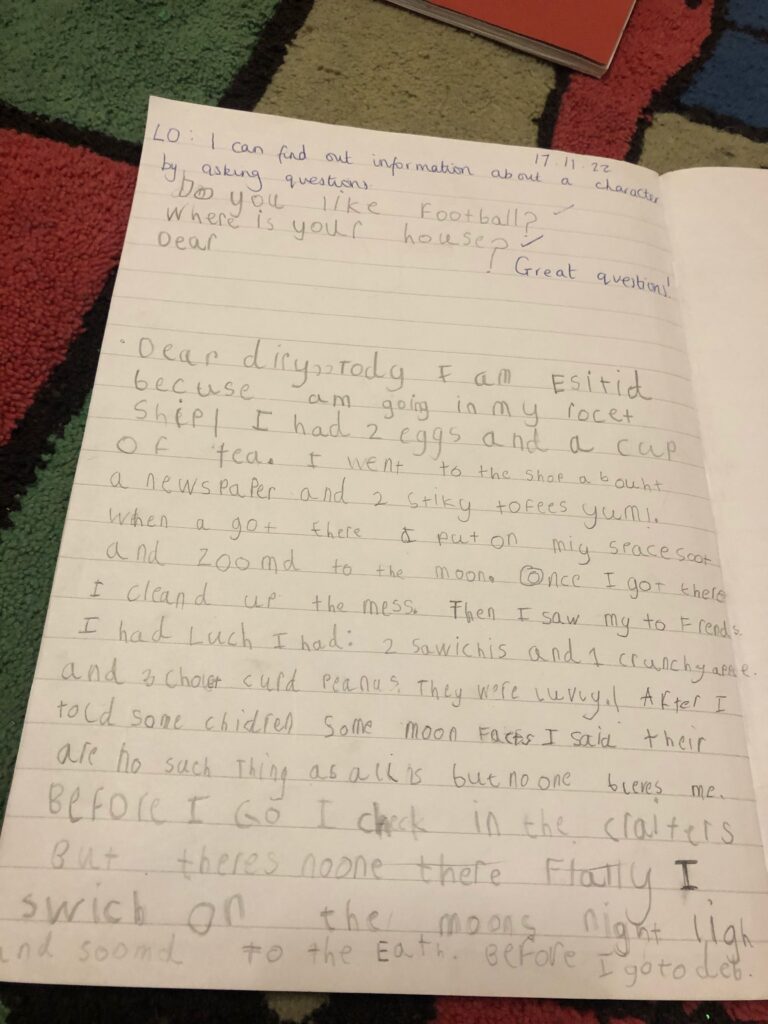 17.11.22
LO: I can find out information about a character
by asking questions.
Do you like Football?
Where is your house?
Dear
! Great questions!
Dear diry,, Tody I am Esitid
becuse am going in my rocet
Ship! I had 2 eggs and a cup
OF tea. I went to the shop abount
a newspaper and 2 stiky tofees yum!.
when a got there I put on miy spacesoot
and zoomd to the moon. Once I got there
I cleand up the mess. Then I saw my to Frends.
I had Luch I had: 2 sawichis and 1 crunchy apple.
and 3 curd peanus. They were luvuy.! AFter I
told some chidren some moon Facts I said their
are no such Thing as aliis but no one bleves me.
BeFore I GO I check in the craiters
But theres noone there Ftally I
swich on the moons night ligh
and soomd to the Eath. BeFore I go to deb.